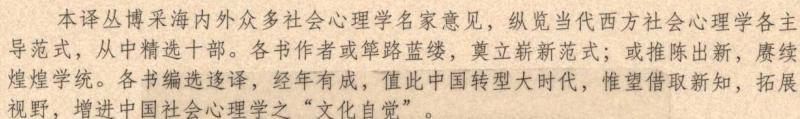 本译丛博采海内外众多社会心理学名家意见，纵览当代西方社会心理学各主
导范式，从中精选十部。各书作者或筚路蓝缕，奠立崭新范式；或推陈出新，赓续
煌煌学统。各书编选迻译，经年有成，值此中国转型大时代，惟望借取新知，拓展
视野，增进中国社会心理学之“文化自觉”。